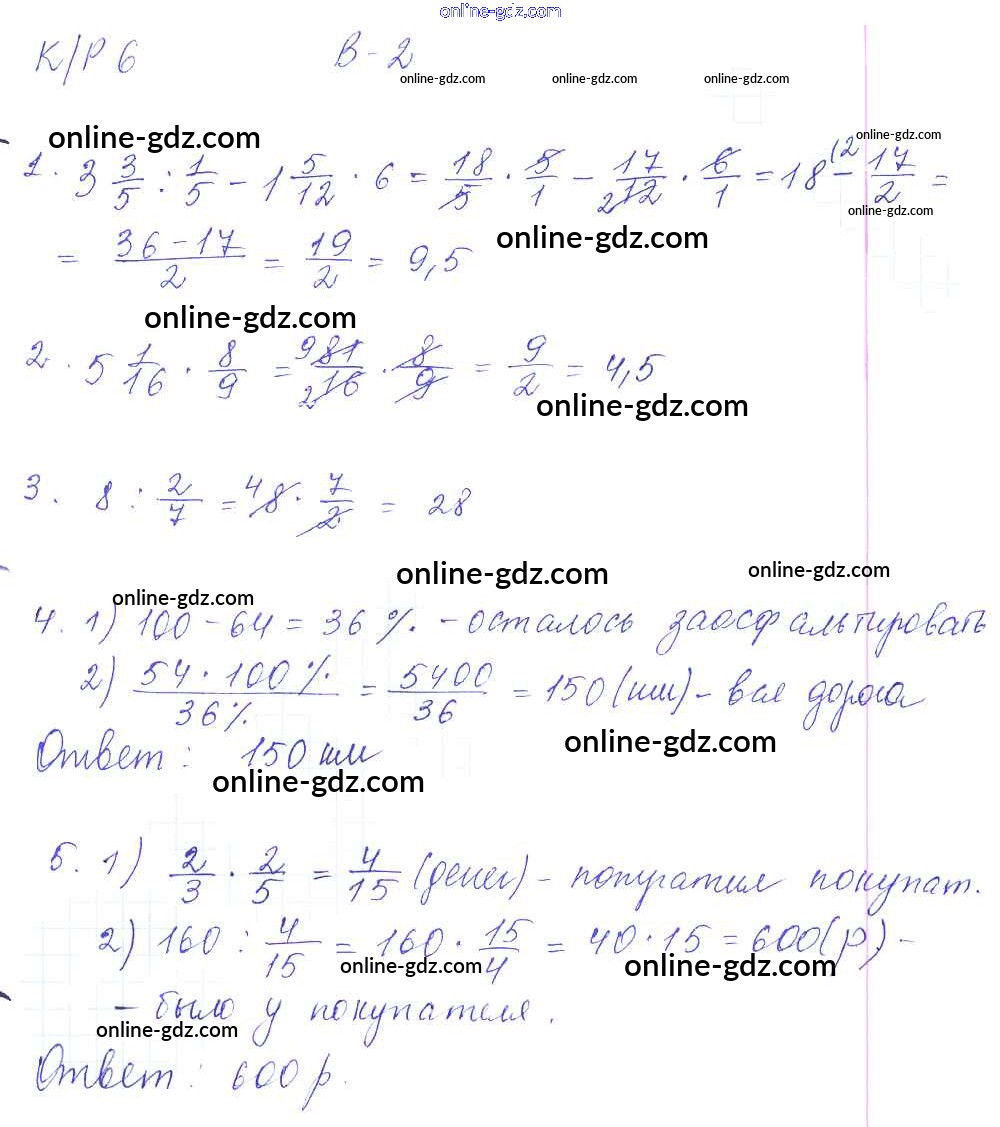 online-gdz.com
К/Р 6 В-2
online-gdz.com online-gdz.com online-gdz.com
online-gdz.com online-gdz.com
1. 3 3/5 : 1/5 - 1 5/12 · 6 = 18/5 · 5/1 - 17/12 · 6/1 = 18 (2 - 17/2 =
online-gdz.com online-gdz.com
= 36-17/2 = 19/2 = 9,5
online-gdz.com
2. 5 1/16 · 8/9 = 9 81/2 16 · 8/9 = 9/2 = 4,5
online-gdz.com
3. 8 : 2/7 = 4 8 · 7/2 = 28
online-gdz.com online-gdz.com
online-gdz.com
4. 1) 100 - 64 = 36 % - осталось заасфальтировать
2) 54 · 100 %/36 % = 5400/36 = 150 (км) - вся дорога
online-gdz.com
Ответ: 150 км
online-gdz.com
5. 1) 2/3 · 2/5 = 4/15 (денег) - покупат.
2) 160 : 4/15 = 160 · 15/4 = 40 · 15 = 600 (р) -
online-gdz.com online-gdz.com
- было у покупателя.
online-gdz.com
Ответ: 600 р.